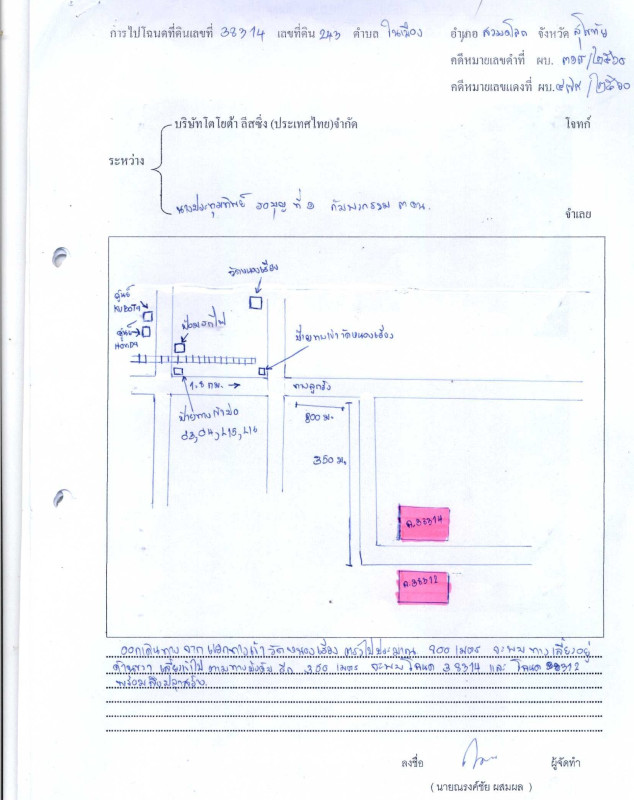 การไปโฉนดที่ดินเลขที่ 38314 เลขที่ดิน 243 ตำบล ในเมือง อำเภอ สวรรคโลก จังหวัด สุโขทัย
คดีหมายเลขดำที่ ผบ. /๒๕๖๐
คดีหมายเลขแดงที่ ผบ. /๒๕๖๐
บริษัทโตโยต้า ลีสซิ่ง (ประเทศไทย)จำกัด โจทก์
ระหว่าง
ที่ ๑ กับพวกรวม คน. จำเลย
วัดหนองเรือง
ศูนย์
KUBOTA
ศูนย์
HONDA
ป้ายทางเข้า วัดหนองเรือง
1.8 กม. →
ทางลูกรัง
ป้ายทางเข้าบ่อ
d3, d4, L15, L16
800 ม.
350 ม.
ฉ.38314
ฉ.38312
ออกเดินทาง จาก ทางเข้า วัดหนองเรือง ตรงไปประมาณ 900 เมตร จะพบ ทางเลี้ยวอยู่
ด้านขวา เลี้ยวเข้าไป ตามทาง อีก 350 เมตร จะพบ โฉนด 38314 และ โฉนด 38312
พร้อมสิ่งปลูกสร้าง.
ลงชื่อ ผู้จัดทำ
( นายณรงค์ชัย ผสมผล )